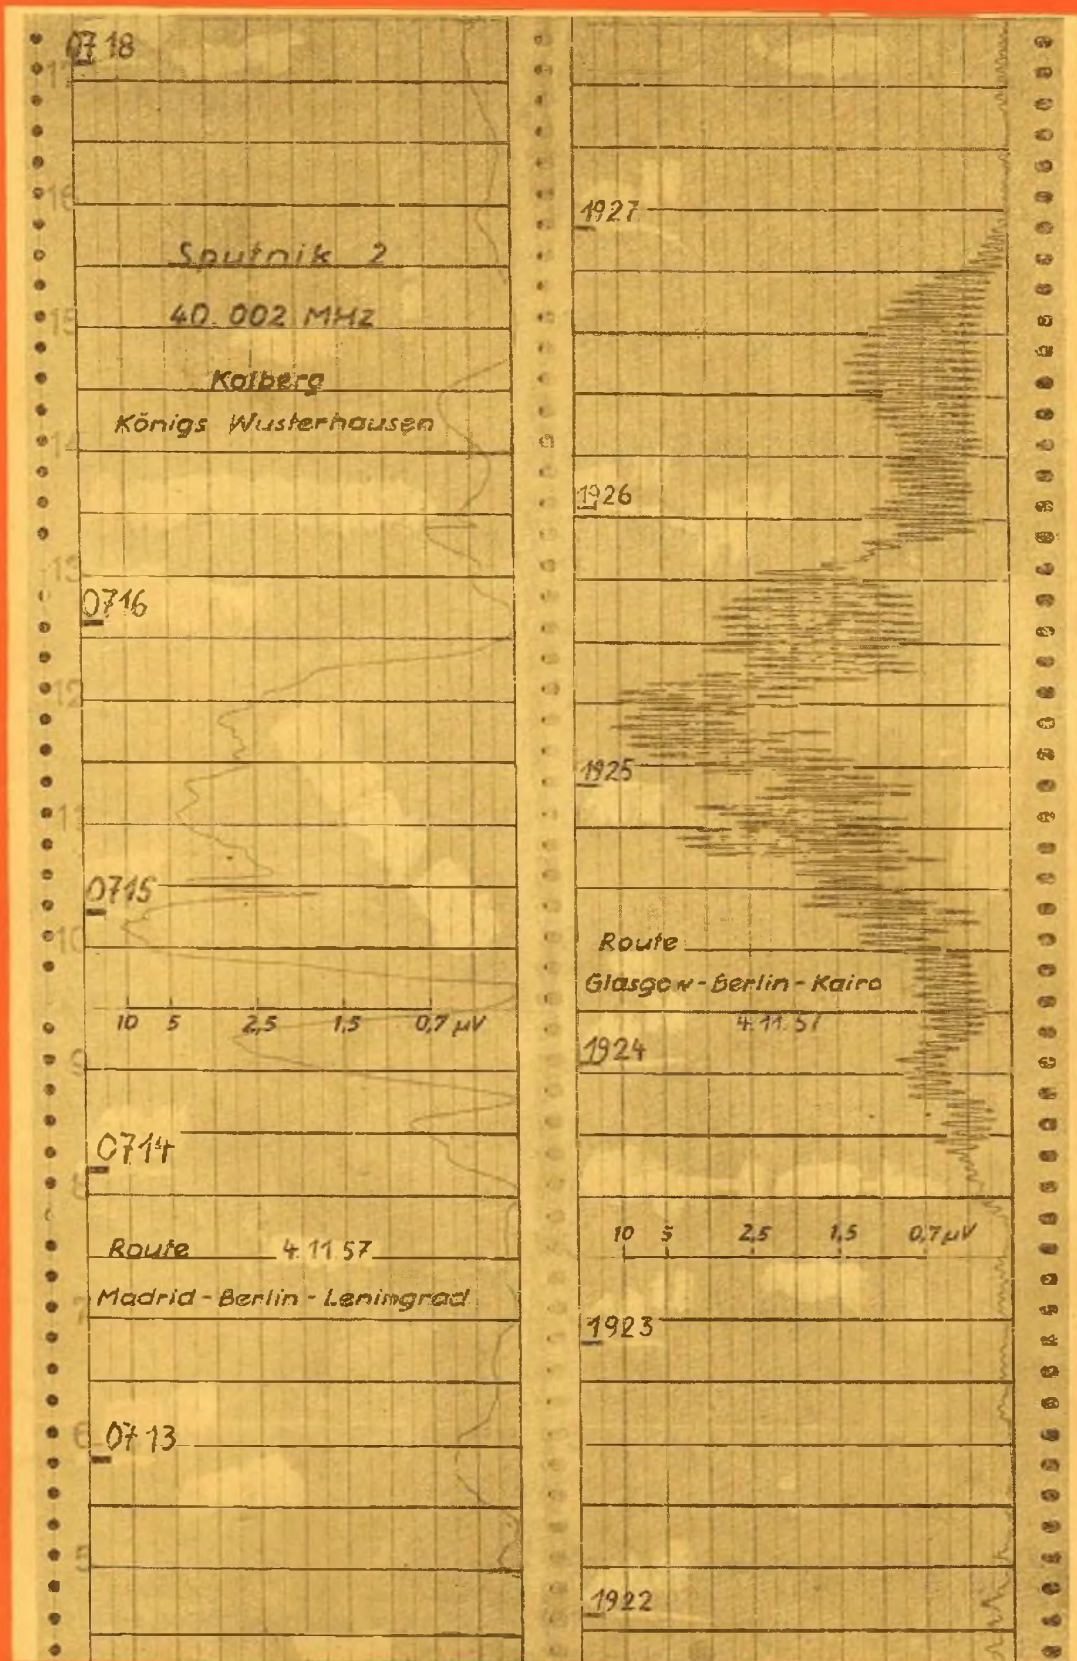 0718
17
16
Sputnik 2
15
40.002 MHz
Kolberg
Königs Wusterhausen
14
13
0716
12
11
0715
10
10 5 2,5 1,5 0,7 µV
9
0714
8
Route 4.11.57
Madrid - Berlin - Leningrad
7
6
0713
5
1927
1926
1925
Route
Glasgow - Berlin - Kairo
4.11.57
1924
10 5 2,5 1,5 0,7 µV
1923
1922